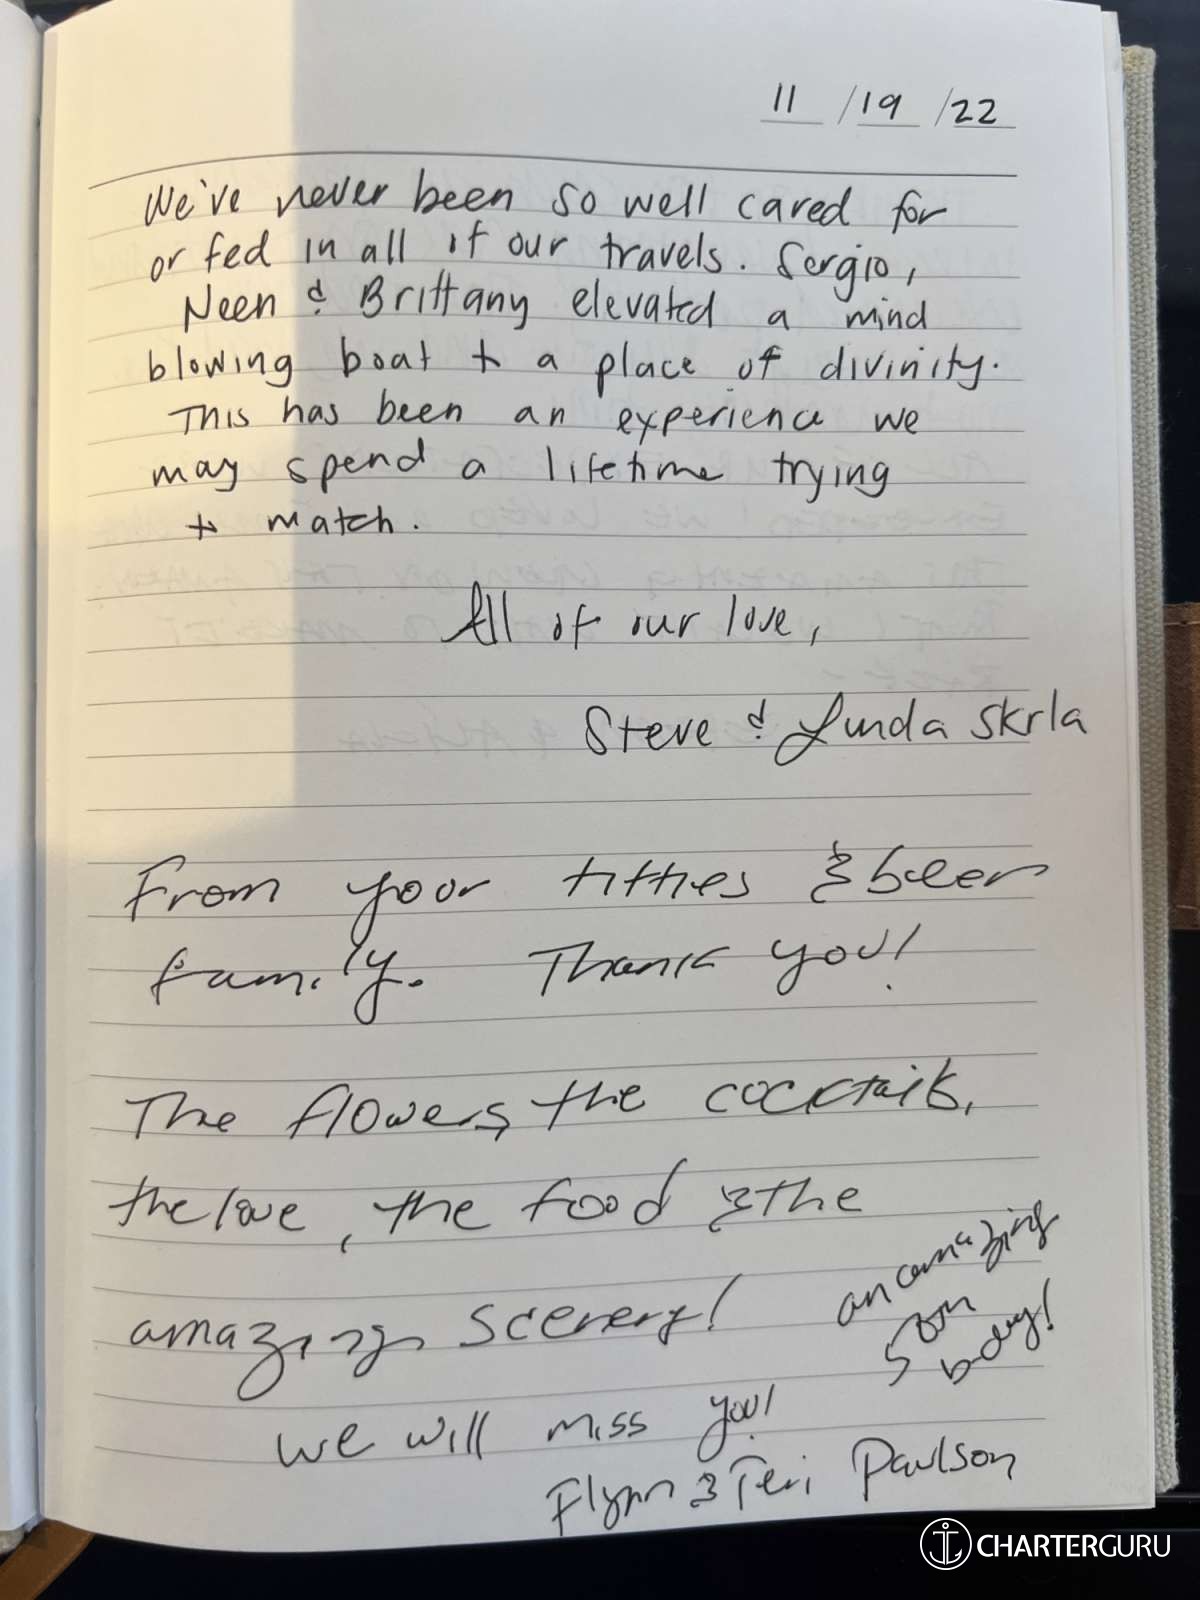 11 / 19 / 22
We've never been so well cared for
or fed in all of our travels. Sergio,
Neen & Brittany elevated a mind
blowing boat to a place of divinity.
This has been an experience we
may spend a lifetime trying
to match.
All of our love,
Steve & Linda Skrla
From your titties & beer
family. Thank you!
The flowers, the cocktails,
the love, the food & the
amazing scenery!
an amazing
50th
bday!
we will miss you!
Flynn & Teri Paulson
CHARTERGURU